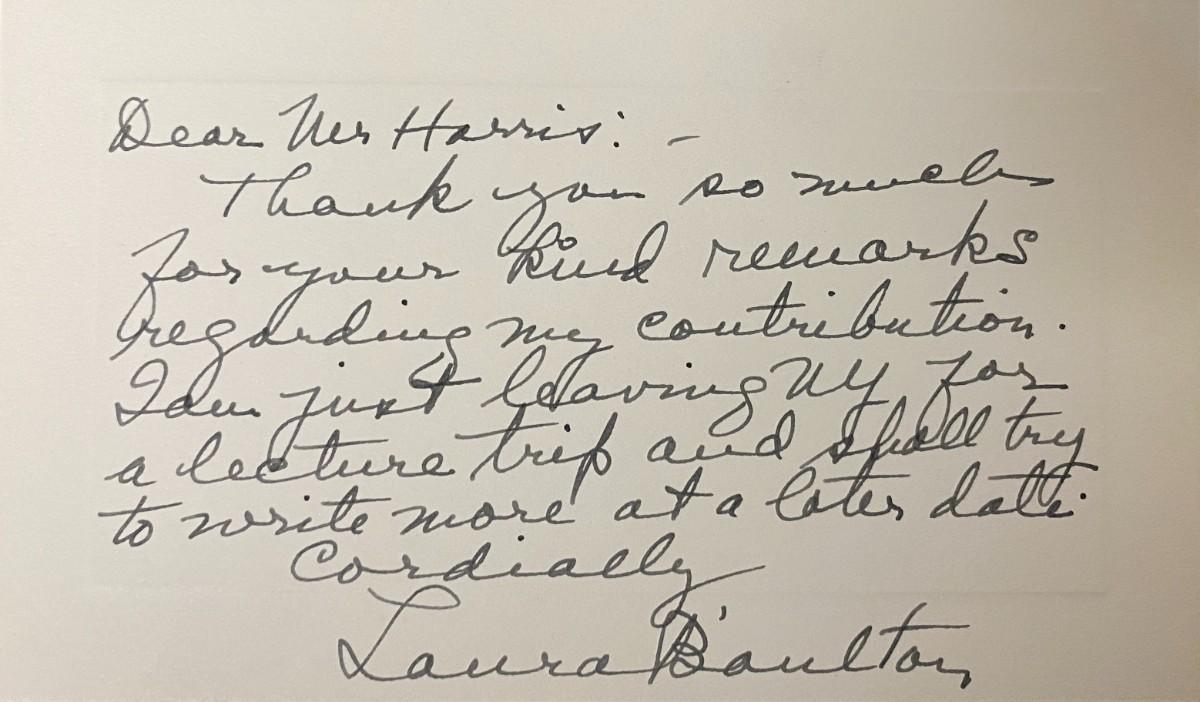 Dear Mr Harris: -
Thank you so much
for your kind remarks
regarding my contribution.
I am just leaving NY for
a lecture trip and shall try
to write more at a later date.
Cordially
Laura Boulton